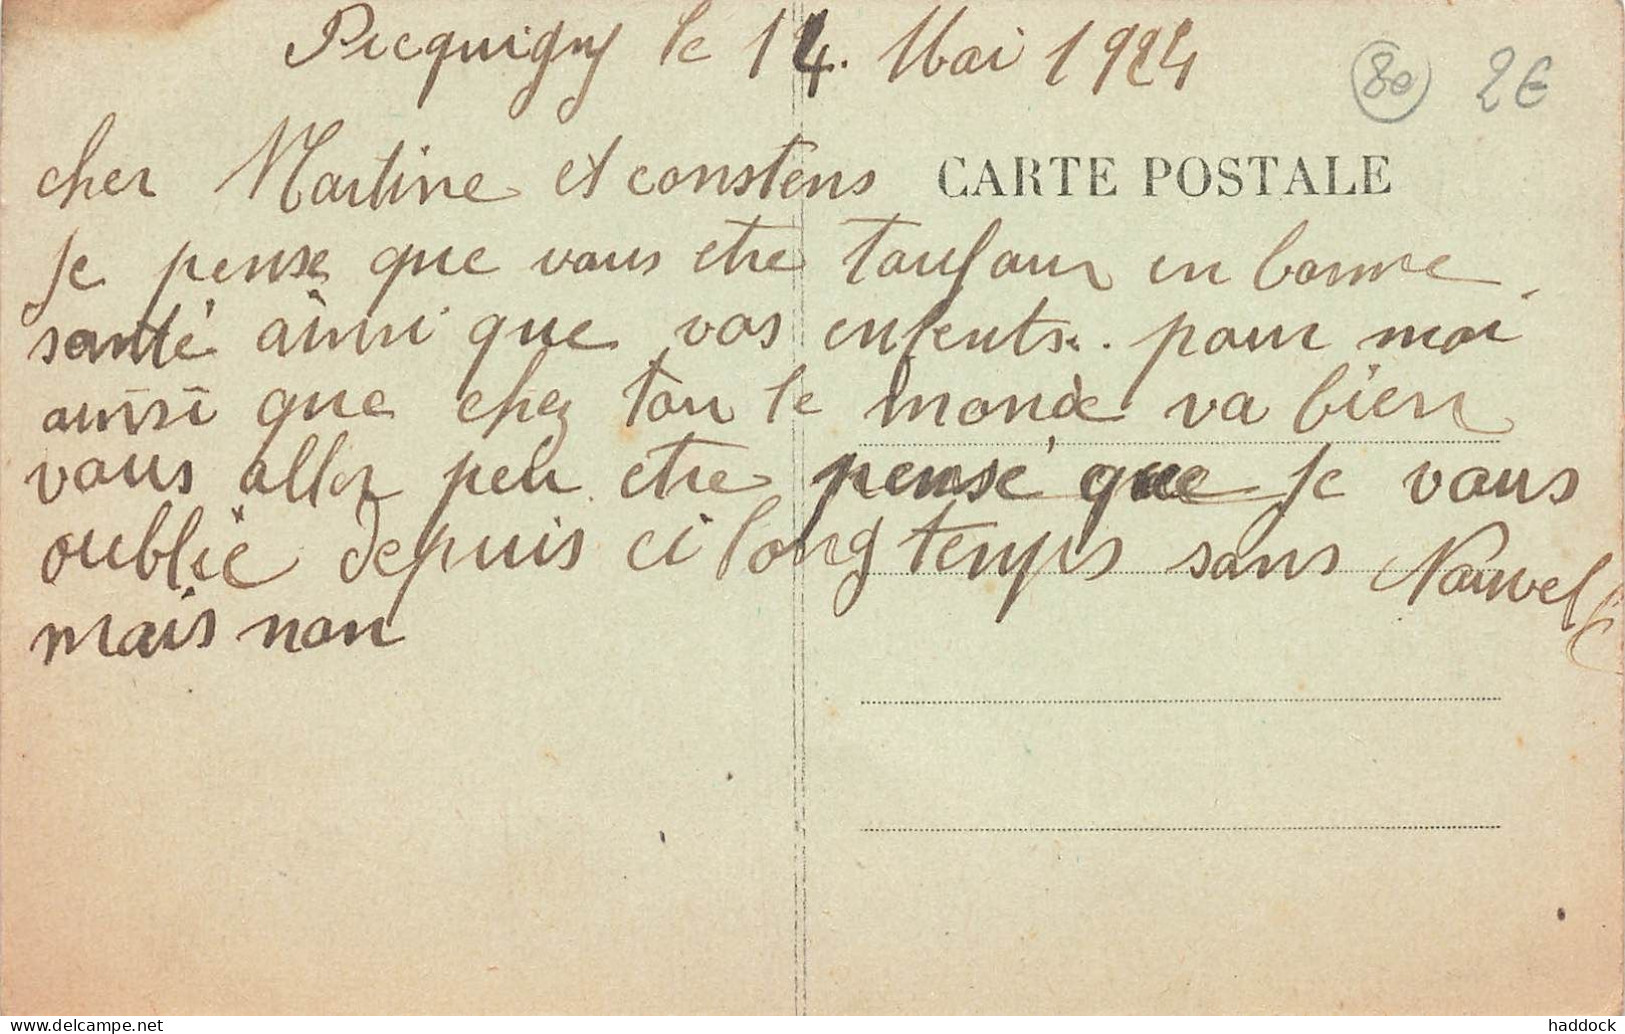 Picquigny le 14. Mai 1924
8e 2€
cher Martine et constens
CARTE POSTALE
Je pense que vous etre toujour en bonne
santé ainsi que vos enfents. pour moi
ainsi que chez tou le monde va bien
vous aller peu etre pensé que je vous
oublié depuis ci long temps sans Nouvelle
mais non
www.delcampe.net
haddock